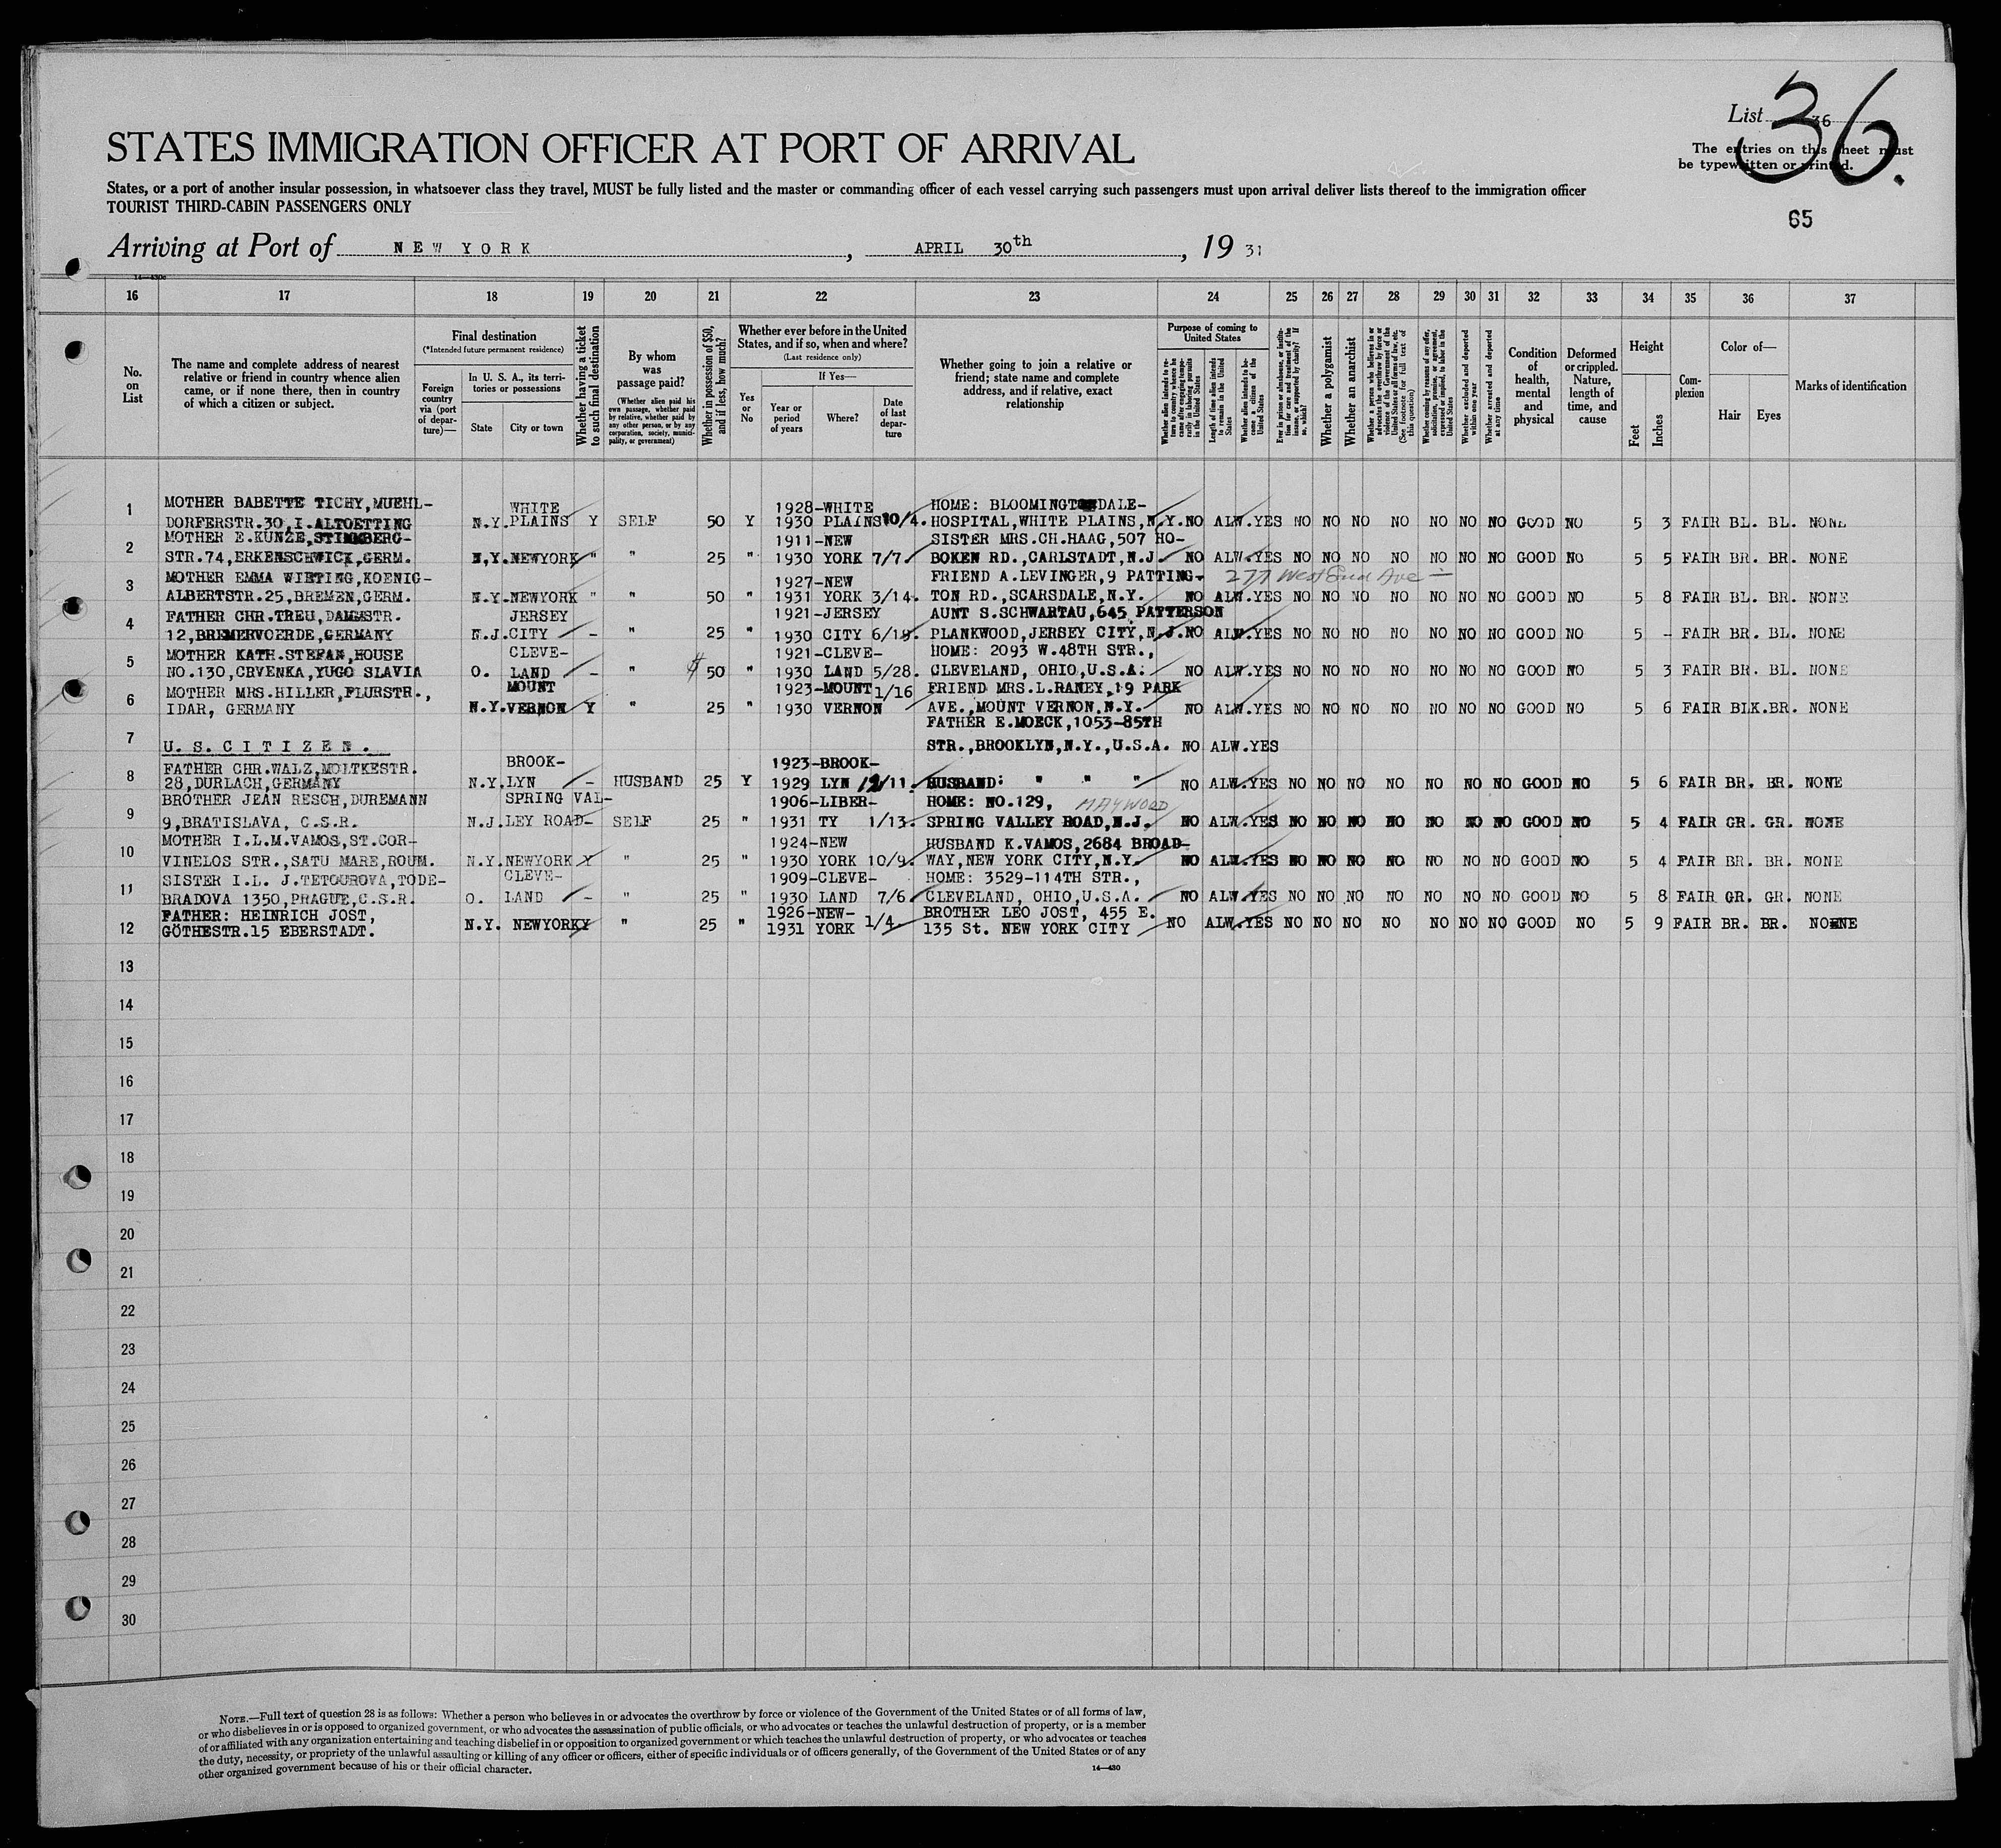 List 36
36.
The entries on this sheet must
be typewritten or printed.
STATES IMMIGRATION OFFICER AT PORT OF ARRIVAL
States, or a port of another insular possession, in whatsoever class they travel, MUST be fully listed and the master or commanding officer of each vessel carrying such passengers must upon arrival deliver lists thereof to the immigration officer
TOURIST THIRD-CABIN PASSENGERS ONLY
65
Arriving at Port of NEW YORK, APRIL 30th, 1931
14—430c
16 17 18 19 20 21 22 23 24 25 26 27 28 29 30 31 32 33 34 35 36 37
No. on List
The name and complete address of nearest relative or friend in country whence alien came, or if none there, then in country of which a citizen or subject.
Final destination
(*Intended future permanent residence)
Foreign country via (port of departure)—
In U. S. A., its territories or possessions
State
City or town
Whether having a ticket to such final destination
By whom was passage paid?
(Whether alien paid his own passage, whether paid by relative, whether paid by any other person, or by any corporation, society, municipality, or government)
Whether in possession of $50, and if less, how much?
Whether ever before in the United States, and if so, when and where?
(Last residence only)
Yes or No
If Yes—
Year or period of years
Where?
Date of last departure
Whether going to join a relative or friend; state name and complete address, and if relative, exact relationship
Purpose of coming to United States
Whether alien intends to return to country whence he came after engaging temporarily in laboring pursuits in the United States
Length of time alien intends to remain in the United States
Whether alien intends to become a citizen of the United States
Ever in prison or almshouse, or institution for care and treatment of the insane, or supported by charity? If so, which?
Whether a polygamist
Whether an anarchist
Whether a person who believes in or advocates the overthrow by force or violence of the Government of the United States or all forms of law, etc. (See footnote for full text of this question)
Whether coming by reasons of any offer, solicitation, promise, or agreement, expressed or implied, to labor in the United States
Whether excluded and deported within one year
Whether arrested and deported at any time
Condition of health, mental and physical
Deformed or crippled. Nature, length of time, and cause
Height
Feet
Inches
Complexion
Color of—
Hair
Eyes
Marks of identification
MOTHER BABETTE TICHY, MUEHL- WHITE 1928-WHITE HOME: BLOOMINGTONDALE-
1 DORFERSTR.30,I.ALTOETTING N.Y. PLAINS Y SELF 50 Y 1930 PLAINS 10/4. HOSPITAL,WHITE PLAINS,N.Y. NO ALW. YES NO NO NO NO NO NO NO GOOD NO 5 3 FAIR BL. BL. NONE
MOTHER E.KUNZE,STIMMBERG- 1911-NEW SISTER MRS.CH.HAAG,507 HO-
2 STR.74,ERKENSCHWICK,GERM. N,Y. NEWYORK " " 25 " 1930 YORK 7/7. BOKEN RD.,CARLSTADT,N.J. NO ALW. YES NO NO NO NO NO NO NO GOOD NO 5 5 FAIR BR. BR. NONE
MOTHER EMMA WIETING,KOENIG- 1927-NEW FRIEND A.LEVINGER,9 PATTING- 277 West End Ave
3 ALBERTSTR.25,BREMEN,GERM. N.Y. NEWYORK " " 50 " 1931 YORK 3/14. TON RD.,SCARSDALE,N.Y. NO ALW. YES NO NO NO NO NO NO NO GOOD NO 5 8 FAIR BL. BR. NONE
FATHER CHR.TREU,DAMMSTR. JERSEY 1921-JERSEY AUNT S.SCHWARTAU,645 PATTERSON
4 12,BREMERVOERDE,GERMANY N.J. CITY - " 25 " 1930 CITY 6/19. PLANKWOOD,JERSEY CITY,N.J. NO ALW. YES NO NO NO NO NO NO NO GOOD NO 5 - FAIR BR. BL. NONE
MOTHER KATH.STEFAN,HOUSE CLEVE- 1921-CLEVE- HOME: 2093 W.48TH STR.,
5 NO.130,CRVENKA,YUGO SLAVIA O. LAND - " $ 50 " 1930 LAND 5/28. CLEVELAND, OHIO,U.S.A. NO ALW. YES NO NO NO NO NO NO NO GOOD NO 5 3 FAIR BR. BL. NONE
MOTHER MRS.HILLER,FLURSTR., MOUNT 1923-MOUNT 1/16 FRIEND MRS.L.RANEY,19 PARK
6 IDAR, GERMANY N.Y. VERNON Y " 25 " 1930 VERNON AVE.,MOUNT VERNON,N.Y. NO ALW. YES NO NO NO NO NO NO NO GOOD NO 5 6 FAIR BLK. BR. NONE
FATHER E.MOECK,1053-85TH
7 U.S.CITIZEN. STR.,BROOKLYN,N.Y.,U.S.A. NO ALW. YES
FATHER CHR.WALZ,MOLTKESTR. BROOK- 1923-BROOK-
8 28,DURLACH,GERMANY N.Y. LYN - HUSBAND 25 Y 1929 LYN 12/11. HUSBAND: " " " NO ALW. YES NO NO NO NO NO NO NO GOOD NO 5 6 FAIR BR. BR. NONE
BROTHER JEAN RESCH,DUREMANN SPRING VAL- 1906-LIBER- HOME: NO.129, MAYWOOD
9 9,BRATISLAVA, C.S.R. N.J. LEY ROAD- SELF 25 " 1931 TY 1/13. SPRING VALLEY ROAD,N.J. NO ALW. YES NO NO NO NO NO NO NO GOOD NO 5 4 FAIR GR. GR. NONE
MOTHER I.L.M.VAMOS,ST.COR- 1924-NEW HUSBAND K.VAMOS,2684 BROAD-
10 VINELOS STR.,SATU MARE,ROUM. N.Y. NEWYORK Y " 25 " 1930 YORK 10/9. WAY,NEW YORK CITY,N.Y. NO ALW. YES NO NO NO NO NO NO NO GOOD NO 5 4 FAIR BR. BR. NONE
SISTER I.L. J.TETOUROVA,TODE- CLEVE- 1909-CLEVE- HOME: 3529-114TH STR.,
11 BRADOVA 1350,PRAGUE,C.S.R. O. LAND - " 25 " 1930 LAND 7/6. CLEVELAND, OHIO,U.S.A. NO ALW. YES NO NO NO NO NO NO NO GOOD NO 5 8 FAIR GR. GR. NONE
FATHER: HEINRICH JOST, 1926-NEW- BROTHER LEO JOST, 455 E.
12 GÖTHESTR.15 EBERSTADT. N.Y. NEWYORK Y " 25 " 1931 YORK 1/4 135 St. NEW YORK CITY NO ALW. YES NO NO NO NO NO NO NO GOOD NO 5 9 FAIR BR. BR. NONE
13
14
15
16
17
18
19
20
21
22
23
24
25
26
27
28
29
30
NOTE.—Full text of question 28 is as follows: Whether a person who believes in or advocates the overthrow by force or violence of the Government of the United States or of all forms of law,
or who disbelieves in or is opposed to organized government, or who advocates the assassination of public officials, or who advocates or teaches the unlawful destruction of property, or is a member
of or affiliated with any organization entertaining and teaching disbelief in or opposition to organized government or which teaches the unlawful destruction of property, or who advocates or teaches
the duty, necessity, or propriety of the unlawful assaulting or killing of any officer or officers, either of specific individuals or of officers generally, of the Government of the United States or of any
other organized government because of his or their official character.
14—430